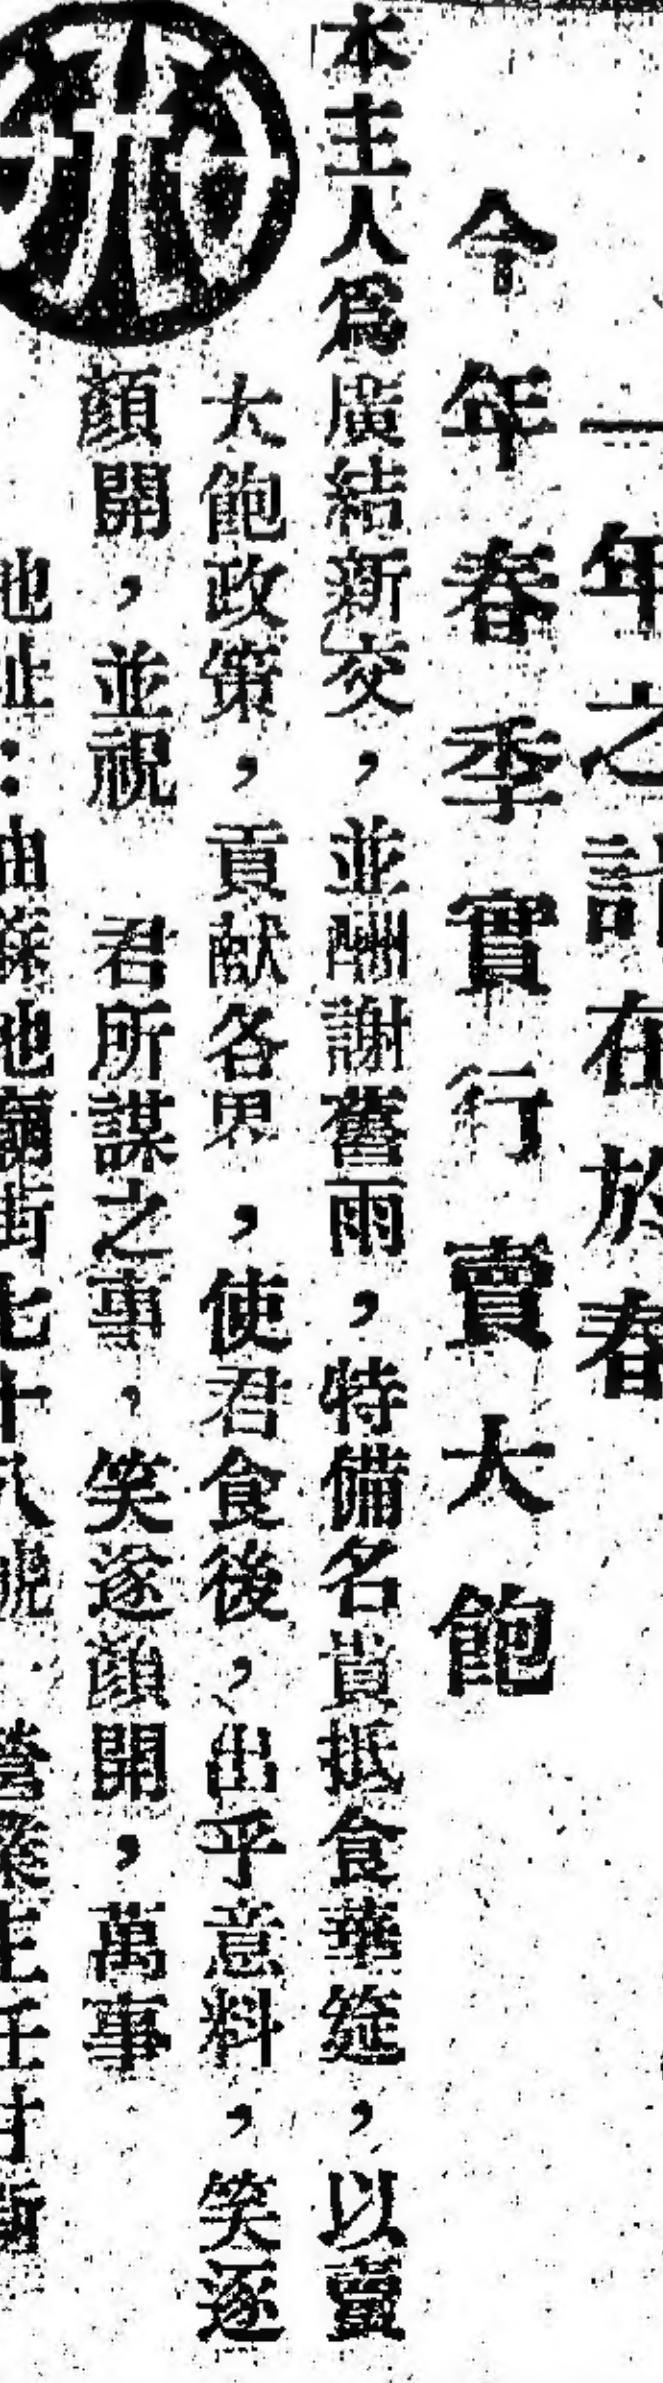 一年之計在於春
今年春季實行賣大飽
本主人爲廣結新交，並酬謝舊雨，特備名貴抵食華筵，以賣
大飽政策，貢献各界，使君食後，出乎意料，笑逐
顏開，並祝　君所謀之事，笑逐顏開，萬事
地址：油蔴地廟街七十八號　營業主任